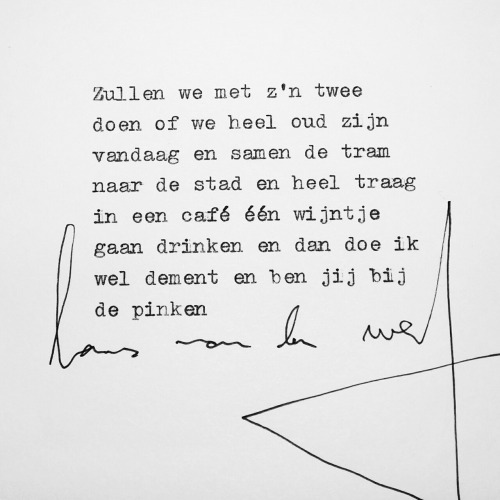 Zullen we met z'n twee
doen of we heel oud zijn
vandaag en samen de tram
naar de stad en heel traag
in een café één wijntje
gaan drinken en dan doe ik
wel dement en ben jij bij
de pinken